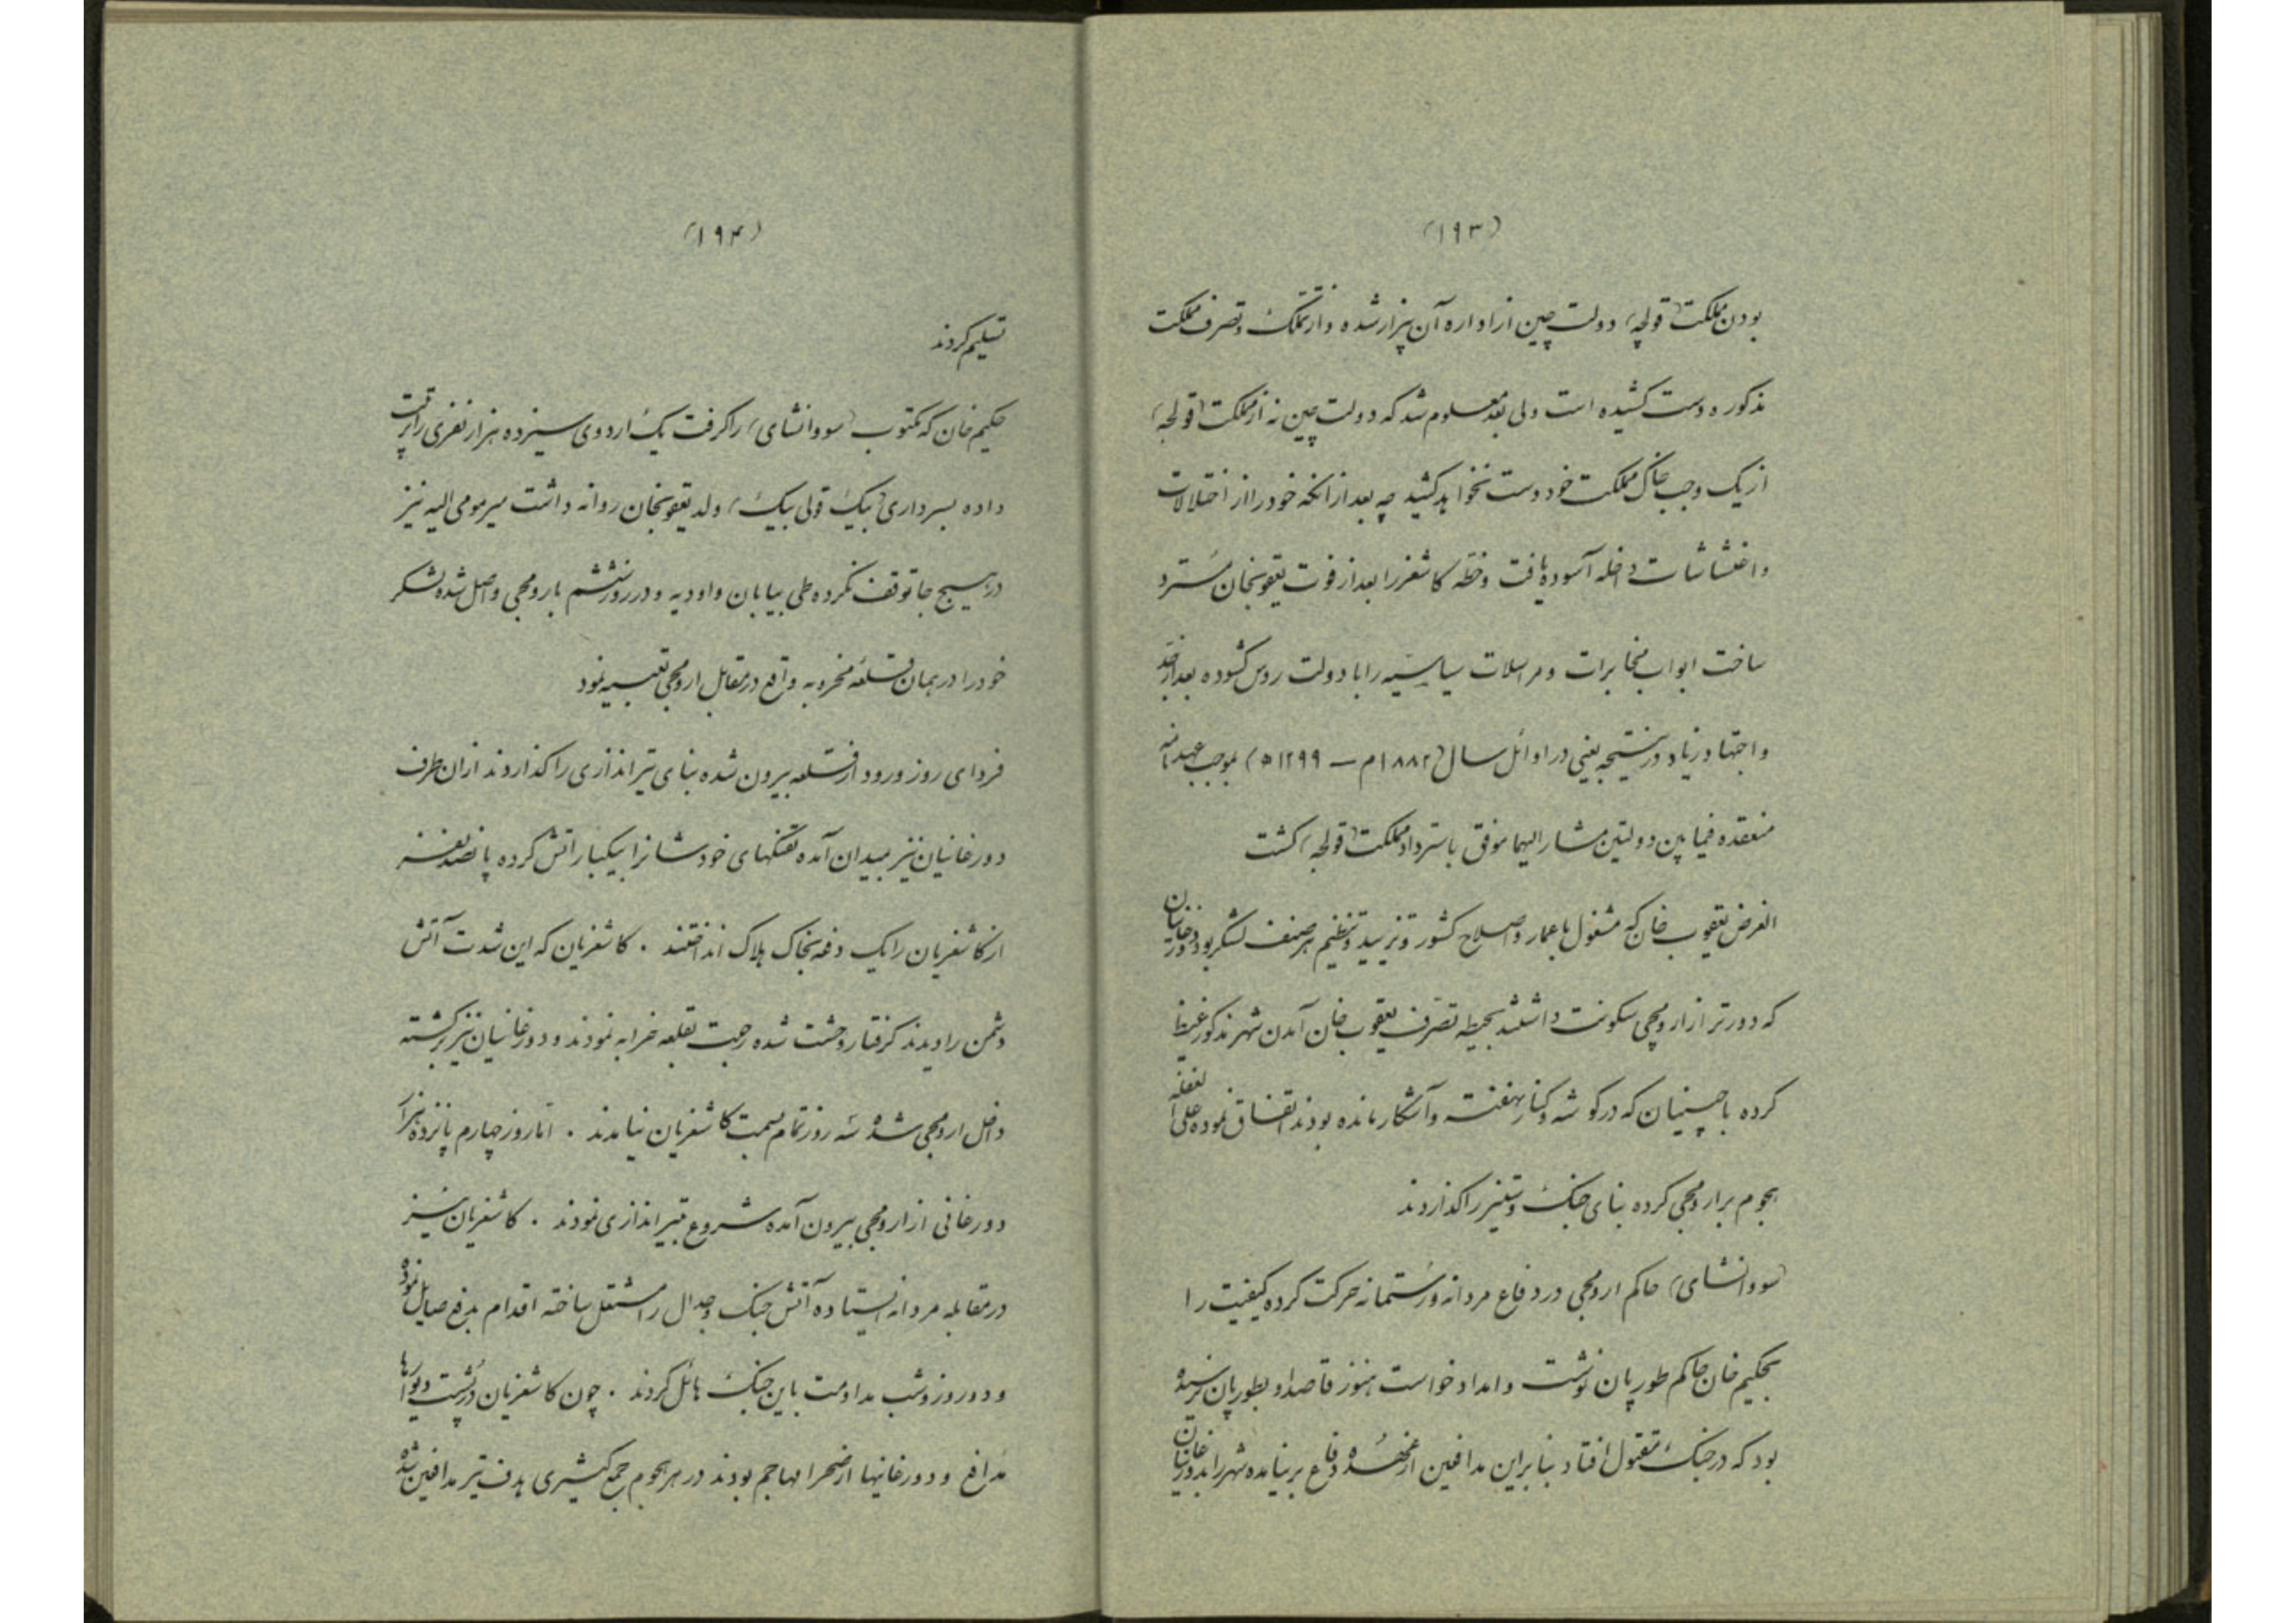 (۱۹۳)
بودن مملکت (قولجه) دولت چین از اداره آن بیزار شده و از تملک و تصرف مملکت
مذکوره دست کشیده است ولی بعد معلوم شد که دولت چین نه از مملکت (قولجه)
از یک وجب خاک مملکت خود دست نخواهد کشید چه بعد از آنکه خود را از اختلالات
و اغتشاشات داخله آسوده یافت و خطه کاشغر را بعد از فوت یعقوبخان مسترد
ساخت ابواب مخابرات و مراسلات سیاسیه را با دولت روس کشوده بعد از جد
و اجتهاد زیاد در نتیجه یعنی در اوائل سال (۱۸۸۲م – ۱۲۹۹ه) بموجب عهدنامه
منعقده فیمابین دولتین مشار الیهما موفق باسترداد مملکت (قولجه) کشت
الغرض یعقوب خان که مشغول باعمار و اصلاح کشور و تزیید و تنظیم هر صنف لشکر بود دورغانیان
که دورتر از ارومچی سکونت داشتند بحیطه تصرف یعقوب خان آمدن شهر مذکور غیظ
کرده با چینیان که در کوشه و کنار نهفته و آشکار مانده بودند اتفاق نموده علی الغفله
هجوم بر ارومچی کرده بنای جنک و ستیز را کذاردند
(سووانشای) حاکم ارومچی در دفاع مردانه و رستمانه حرکت کرده کیفیت را
بحکیم خان حاکم طورپان نوشت و امداد خواست هنوز قاصد او بطورپان نرسیده
بود که در جنک مقتول افتاد بنابراین مدافعین از عهده دفاع برنیامده شهر را بدورغانیان
(۱۹۴)
تسلیم کردند
حکیم خان که مکتوب (سووانشای) را کرفت یک اردوی سیزده هزار نفری را ترتیب
داده بسرداری (بیک قولی بیک) ولد یعقوبخان روانه داشت میر مومی الیه نیز
در هیچ جا توقف نکرده طی بیابان و اودیه و در روز ششم بارومچی واصل شده لشکر
خود را در همان قلعه مخروبه واقع در مقابل ارومچی تعبیه نمود
فردای روز ورود از قلعه بیرون شده بنای تیراندازی را کذاردند از ان طرف
دورغانیان نیز بمیدان آمده تفنکهای خودشانرا بیکبار آتش کرده پانصد نفر
از کاشغریان را یک دفعه بخاک هلاک انداختند . کاشغریان که این شدت آتش
دشمن را دیدند کرفتار وحشت شده رجعت بقلعه خرابه نمودند و دورغانیان نیز برکشته
داخل ارومچی شده سه روز تمام بسمت کاشغریان نیامدند . اما روز چهارم پانزده هزار
دورغانی از ارومچی بیرون آمده شروع بتیراندازی نمودند . کاشغریان نیز
در مقابله مردانه ایستاده آتش جنک و جدال را مشتعل ساخته اقدام بدفع صایل نموده
و دو روز و شب مداومت باین جنک هائل کردند . چون کاشغریان در پشت دیوارها
مدافع و دورغانیها از صحرا مهاجم بودند در هر هجوم جمع کثیری هدف تیر مدافعین شده